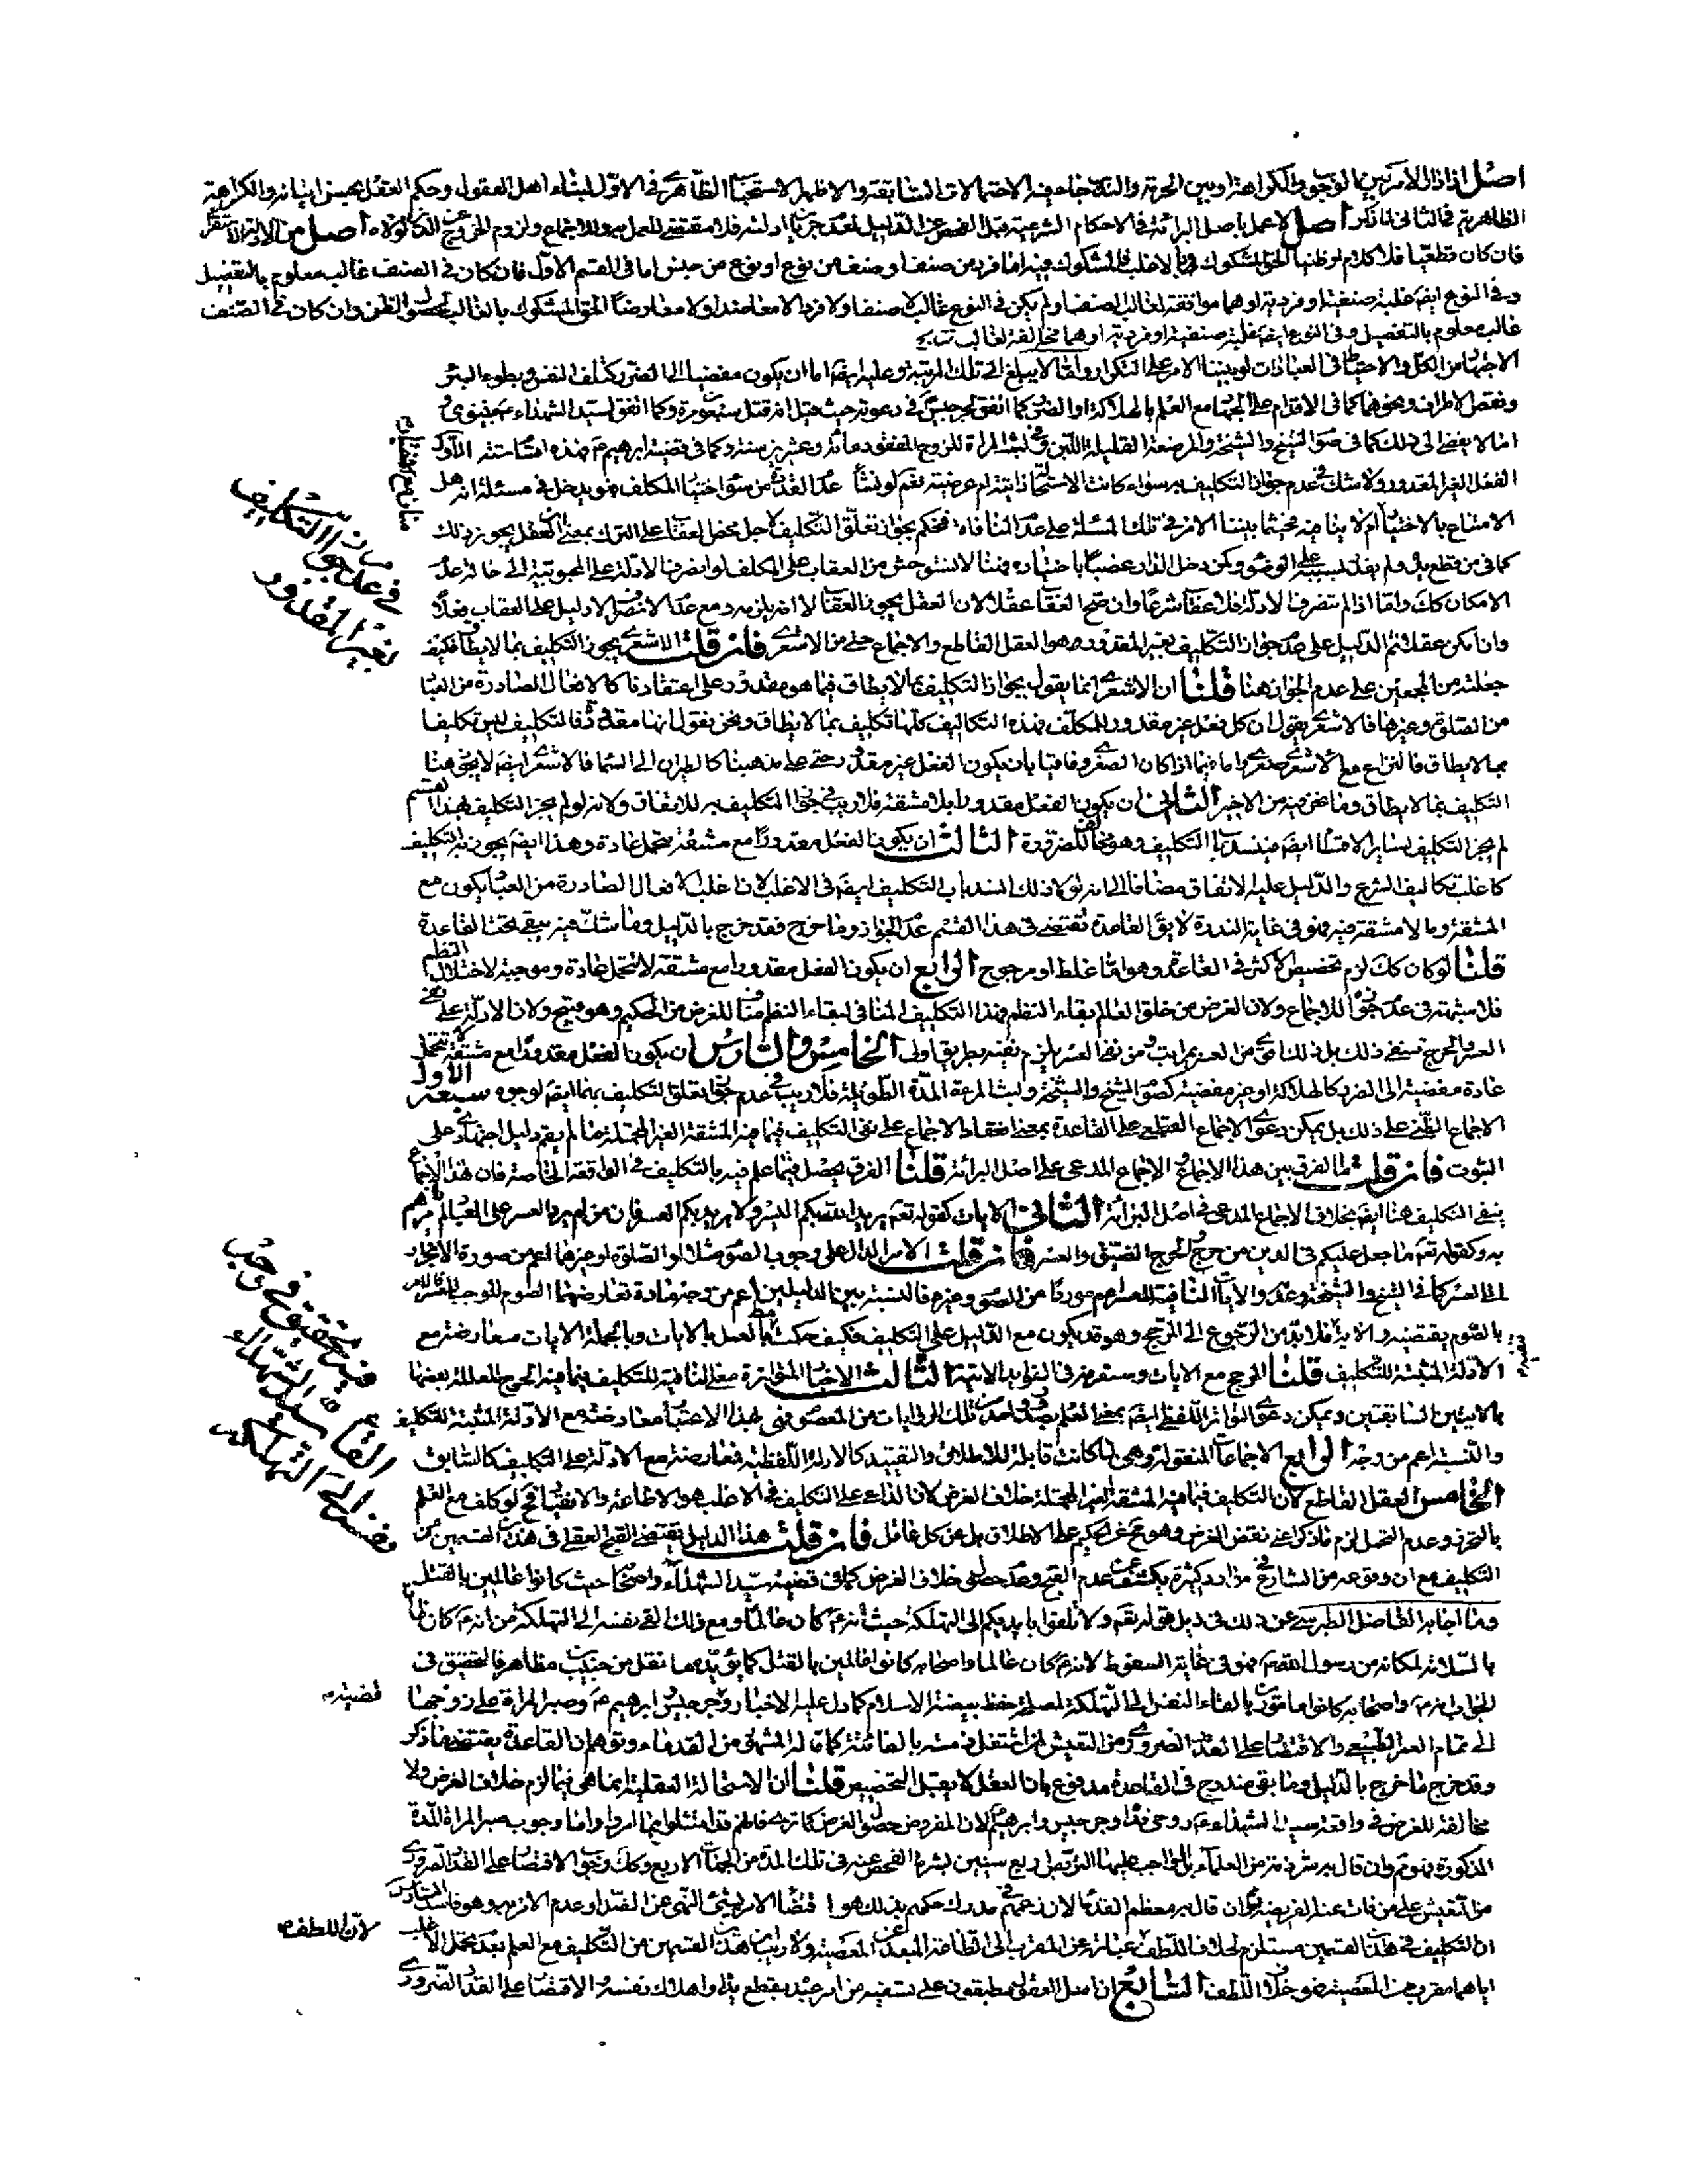 اصل اذا دار الامر بين الوجوب والكراهة او بين الحرمة والندب جاء فيه الاحتمالات السابقة والاظهر الاستحباب الظاهرى فى الاول لبناء اهل العقول وحكم العقل بحسن اتيانه والكراهة
الظاهرية فى الثانى لما ذكر اصل لا عمل باصل البرائة فى الاحكام الشرعية قبل الفحص عن الدليل لعدم جريان ادلته فلا مقتضى للعمل به وللاجماع ولزوم الخروج عن الدين لولاه اصل من الادلة الاستقراء
فان كان قطعيا فلا كلام او ظنيا الحق المشكوك فيه بالاغلب فالمشكوك فيه اما فرد من صنف او صنف من نوع او نوع من جنس اما فى القسم الاول فان كان فى الصنف غالب معلوم بالتفصيل
وفى النوع ايضا غلبة صنفية او فردية او هما موافقة لغالب الصنف او لم يكن فى النوع غالب لا صنفا ولا فردا لا معاضدا ولا معارضا الحق المشكوك بالغالب لحصول الظن وان كان فى الصنف
غالب معلوم بالتفصيل وفى النوع ايضا غلبة صنفية او فردية او هما مخالفة لغالب
الاجتهاد من الكل والاحتياط فى العبادات لو بنينا الامر على التكرار واما لا يبلغ الى تلك المرتبة وعليه ايضا اما ان يكون مفضيا الى الضرر كتلف النفس وبطوء البرء
ونقص الاطراف ونحوهما كما فى الاقدام على الجهاد مع العلم بالهلاكة او الضرر كما اتفق لجرجيس فى دعوته حيث قيل انه قتل سبعين مرة وكما اتفق لسيد الشهداء
اما لا يفضى الى ذلك كما فى صوم الشيخ والشيخة والمرضعة القليلة اللبن وفى لبث المرأة للزوج المفقود مائة وعشرين سنة وكما فى قضية ابرهيم ع فهذه اقسام ستة الاول
الفعل الغير المقدور ولا شك فى عدم جواز التكليف به سواء كانت الاستحالة ذاتية ام عرضية نعم لو نشأ عدم القدرة من سوء اختيار المكلف فهو يدخل فى مسئلة انه هل
الامتناع بالاختيار ام لا ينافيه فحيثما بنينا الامر فى تلك المسئلة على عدم المنافاة فنحكم بجواز تعلق التكليف لاجل محض العقاب على الترك بمعنى ان العقل يجوز ذلك
كما فى من قطع يده ولم يقدر بسببه على الوضوء وكمن دخل الدار غصبا باختياره
الامكان كك واما اذا لم تنصرف الادلة فلا عقاب شرعا وان صح العقاب عقلا لان العقل يجوز العقاب لا انه يلزمه ومع عدم الانصراف لا دليل على العقاب فعلا
وان امكن عقلا ثم الدليل على عدم جواز التكليف بغير المقدور هو العقل القاطع والاجماع حتى من الاشعرى فان قلت الاشعرى يجوز التكليف بما لا يطاق فكيف
جعلته من المجمعين على عدم الجواز هنا قلنا ان الاشعرى انما يقول بجواز التكليف بما لا يطاق فيما هو مقدور على اعتقادنا كالافعال الصادرة من العباد
من الصلوة وغيرها فالاشعرى يقول ان كل فعل غير مقدور للمكلف فهذه التكاليف كلها تكليف بما لا يطاق ونحن نقول انها مقدورة فالتكليف ليس تكليفا
بما لا يطاق فالنزاع مع الاشعرى صغروى واما فيما اذا كان الصغرى وفاقيا بان يكون الفعل غير مقدور حتى على مذهبنا كالطيران الى السماء فالاشعرى ايضا لا يجوز هنا
التكليف بما لا يطاق وما نحن فيه من الاخير الثانى ان يكون الفعل مقدورا بلا مشقة فلا ريب فى جواز التكليف به للاتفاق ولانه لو لم يجز التكليف بهذا القسم
لم يجز التكليف بسائر الاقسام ايضا فينسد باب التكليف وهو مخالف للضرورة الثالث ان يكون الفعل مقدورا مع مشقة يتحمل عادة وهذا ايضا يجوز به التكليف
كاغلب تكاليف الشرع والدليل عليه الاتفاق مضافا الى انه لولا ذلك لانسد باب التكليف ايضا فى الاغلب لان اغلب الافعال الصادرة من العباد يكون مع
المشقة وما لا مشقة فيه فهو فى غاية الندرة لا يق القاعدة تقتضى فى هذا القسم عدم الجواز وما خرج فقد خرج بالدليل وما شك فيه يبقى تحت القاعدة
قلنا لو كان كك لزم تخصيص الاكثر فى القاعدة وهو اما غلط او مرجوح الرابع ان يكون الفعل مقدورا مع مشقة لا تتحمل عادة وموجبة لاختلال النظم
فلا شبهة فى عدم جوازه للاجماع ولان الغرض من خلق العالم بقاء النظم فهذا التكليف المنافى لبقاء النظم مناف للغرض من الحكيم وهو قبيح ولان الادلة على نفى
العسر والحرج تنفى ذلك بل ذلك فوق من العسر بمراتب ومن نفى العسر يلزم نفيه بطريق اولى الخامس والسادس ان يكون الفعل مقدورا مع مشقة لا تتحمل
عادة مفضية الى الضرر كالهلاكة او غير مفضية كصوم الشيخ والشيخة ولبث المرءة المدة الطويلة فلا ريب فى عدم جواز تعلق التكليف بهما ايضا لوجوه سبعة الاول
الاجماع الظنى على ذلك بل يمكن دعوى الاجماع القطعى على القاعدة بمعنى انعقاد الاجماع على نفى التكليف فيما فيه المشقة الغير المحتملة ما لم يقم دليل اجتهادى على
الثبوت فان قلت ما الفرق بين هذا الاجماع والاجماع المدعى على اصل البرائة قلنا الفرق يحصل فيما علم فيه بالتكليف فى الواقعة الخاصة فان هذا الاجماع
ينفى التكليف هنا ايضا بخلاف الاجماع المدعى فى اصل البرائة الثانى الايات كقوله تعالى يريد الله بكم اليسر ولا يريد بكم العسر فان من لم يرد العسر على العباد لم يأمرهم
به وكقوله تعالى ما جعل عليكم فى الدين من حرج والحرج الضيق والعسر فان قلت الامر الدال على وجوب الصوم مثلا او الصلوة او غيرهما اعم من صورة الانجرار
الى العسر كما فى الشيخ والشيخة وعدمه والايات النافية للعسر اعم موردا من الصوم وغيره فالنسبة بين الدليلين اعم من وجه
بالصوم يقتضيه والاية فلابد من الرجوع الى المرجح وهو قد يكون مع الدليل على التكليف فكيف حكمت بالعمل بالايات وبالجملة الايات معارضة مع
الادلة المثبتة للتكليف قلنا المرجح مع الايات وستعرفه فى الفوائد الاتية الثالث الاخبار المتواترة معنى النافية للتكليف فيما فيه الحرج المعلل بعضها
بالايتين السابقتين ويمكن دعوى التواتر اللفظى ايضا بمعنى العلم بصدور احدى تلك الروايات من المعصوم فهى بهذا الاعتبار معارضة مع الادلة المثبتة للتكليف
والنسبة اعم من وجه الرابع الاجماعات المنقولة وهى لما كانت قابلة للاطلاق والتقييد كالادلة اللفظية فمعارضة مع الادلة على التكليف كالسابق
الخامس العقل القاطع لان التكليف فيما فيه المشقة الغير المحتملة خلاف الغرض لان الداعى على التكليف فى الاغلب هو الاطاعة والانقياد فح لو كلف مع العلم
بالتحرز وعدم التحمل لزم ما ذكرنا من نقض الغرض وهو قبيح عن الحكيم على الاطلاق بل عن كل عاقل فان قلت هذا الدليل يقتضى القبح العقلى فى هذين القسمين من
التكليف مع ان وقوعه من الشارع فى موارد كثيرة يكشف عن عدم القبح وعدم حصول خلاف الغرض كما فى قضية سيد الشهداء واصحابه حيث كانوا عالمين بالقتل
وما اجاب الفاضل الطبرسى عن ذلك فى ذيل قوله تعالى ولا تلقوا بايديكم الى التهلكة حيث انه ع كان عالما ومع ذلك القى نفسه الى التهلكة من انه ع كان ظانا
بالسلامة لمكانه من رسول الله ص فهو فى غاية السقوط لانه ع كان عالما واصحابه كانوا عالمين بالقتل كما يؤيده ما نقل من حبيب بن مظاهر فالتحقيق فى
الجواب انه ع واصحابه كانوا مامورين بالقاء النفس الى التهلكة لمصلحة حفظ بيضة الاسلام كما دل عليه الاخبار وجرجيس وابرهيم ع وصبر المراة على زوجها
الى تمام العمر الطبيعى والاقتصار على القدر الضرورى من التعيش لمن اشتغل ذمته بالفائتة كما قاله المشهور من القدماء وتوهم ان القاعدة يقتضى ما ذكر
وقد خرج ما خرج بالدليل وما بقى مندرج فى القاعدة مدفوع بان العقل لا يقبل التخصيص قلنا ان الاستحالة العقلية انما هى فيما لزم خلاف الغرض ولا
مخالفة للغرض فى واقعة سيد الشهداء ع روحى فداه وجرجيس وابرهيم لان المفروض حصول الغرض كما ترى فانهم قد امتثلوا بما امروا واما وجوب صبر المراة المدة
المذكورة فممنوع وان قال به شرذمة من العلماء بل الواجب عليها التربص اربع سنين بشرط الفحص عنه فى تلك المدة من الجهات الاربع وكك وجوب الاقتصار على القدر الضرورى
من التعيش على من فات عنه الفريضة وان قال به معظم القدماء لان زعمهم فى مدرك حكمهم بذلك هو اقتضاء الامر بالشئ النهى عن الضد او عدم الامر به وهو فاسد السادس
ان التكليف فى هذين القسمين مستلزم لخلاف اللطف عبارة عن المقرب الى الطاعة المبعد عن المعصية ولا ريب ان هذين القسمين من التكليف مع العلم بعدم تحمل الاغلب
اياهما مقرب من المعصية فهو خلاف اللطف السابع ان اهل العقول مطبقون على تسفيه من امر عبده بقطع يده او اهلاك نفسه او الاقتصار على القدر الضرورى
فى عدم جواز التكليف
بغير المقدور
فيه تحقيق فى وجه
القاء سيد الشهداء
نفسه الى التهلكة
قضية م
لان اللطف م